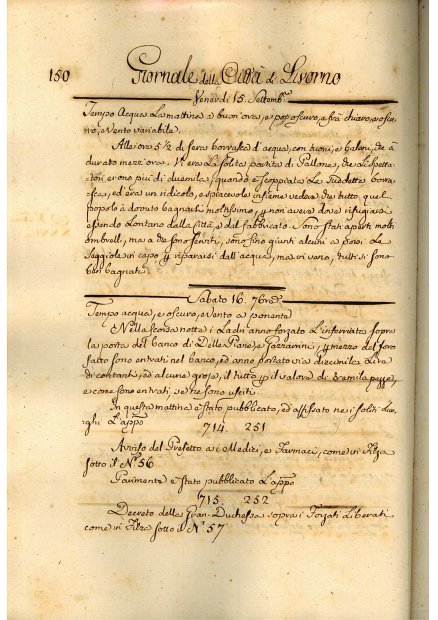 150 Giornale della Città di Livorno
Venerdi 15. Settemb.e
Tempo Acqua La mattina a buon'ora, e poi oscuro, e frà chiaro, e oscu
ro, e Vento variabile.
Alle ore 5½ di sera borrasca d'acqua, con tuoni, e baleni, che à
durato mezz'ora. Vi era La solita partita di Pallone, che Le spetta-
tori erono più di duemila, quando è scoppiata La suddetta borra-
sca, ed era un ridicolo, e spiacevole insieme vedere che tutto quel
popolo à dovuto bagnarsi moltissimo, p non avere dove rifugiarsi
essendo Lontano dalla Città, e dal fabbricato. Sono stati aperti molti
ombrelli, ma a che sono serviti, sono sino giunti alcuni a porsi Le
Seggiole in capo p ripararsi dall'acqua, ma in vano, tutti si sono
ben bagnati.
Sabato 16. 7bre
Tempo acqua, e oscuro, e vento a ponente
Nella scorsa notte i Ladri anno forzato L'inferriata sopra
la porta del banco di Delle Piane, e Gazzarini, p mezzo del foro
fatto sono entrati nel banco, ed anno portato via diecimila Lire
di contanti, ed alcune gioje, il tutto p il valore di tremila pezze,
e come sono entrati, se ne sono usciti.
In questa mattina è stato pubblicato, ed affissato nei soliti Luo-
ghi L'appo
714. 251
Avviso del Prefetto a i Medici, e Farmaci, come in Filza
sotto il N.° 56
Parimente è stato pubblicato L'appo
715. 252
Decreto della Gran-Duchessa sopra i Forzati Liberati
come in Filza sotto il N.° 57